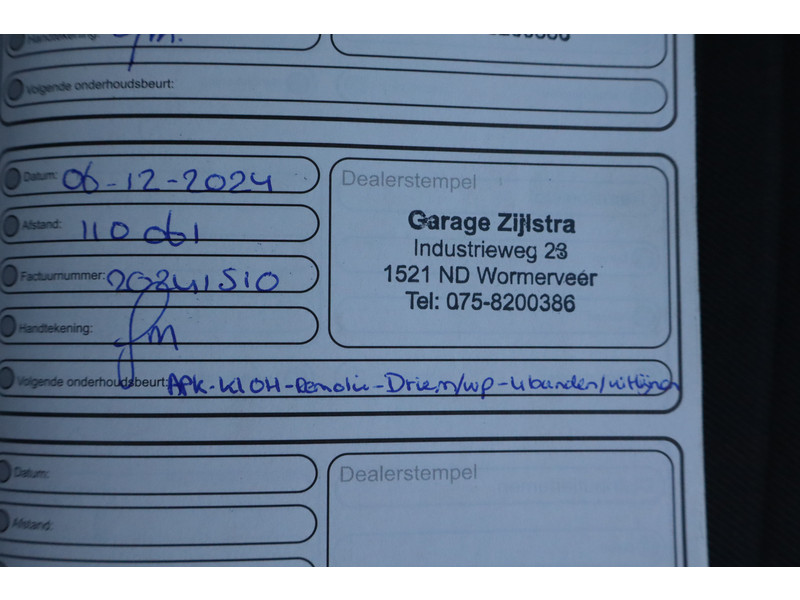 Handtekening:
Volgende onderhoudsbeurt:
Datum: 06-12-2024
Afstand: 110 061
Factuurnummer: 20241510
Handtekening:
Volgende onderhoudsbeurt: APK-Kl OH-Remolie-Driem/wp-4banden/uitlijnen
Dealerstempel
Garage Zijlstra
Industrieweg 23
1521 ND Wormerveer
Tel: 075-8200386
Datum:
Afstand:
Dealerstempel